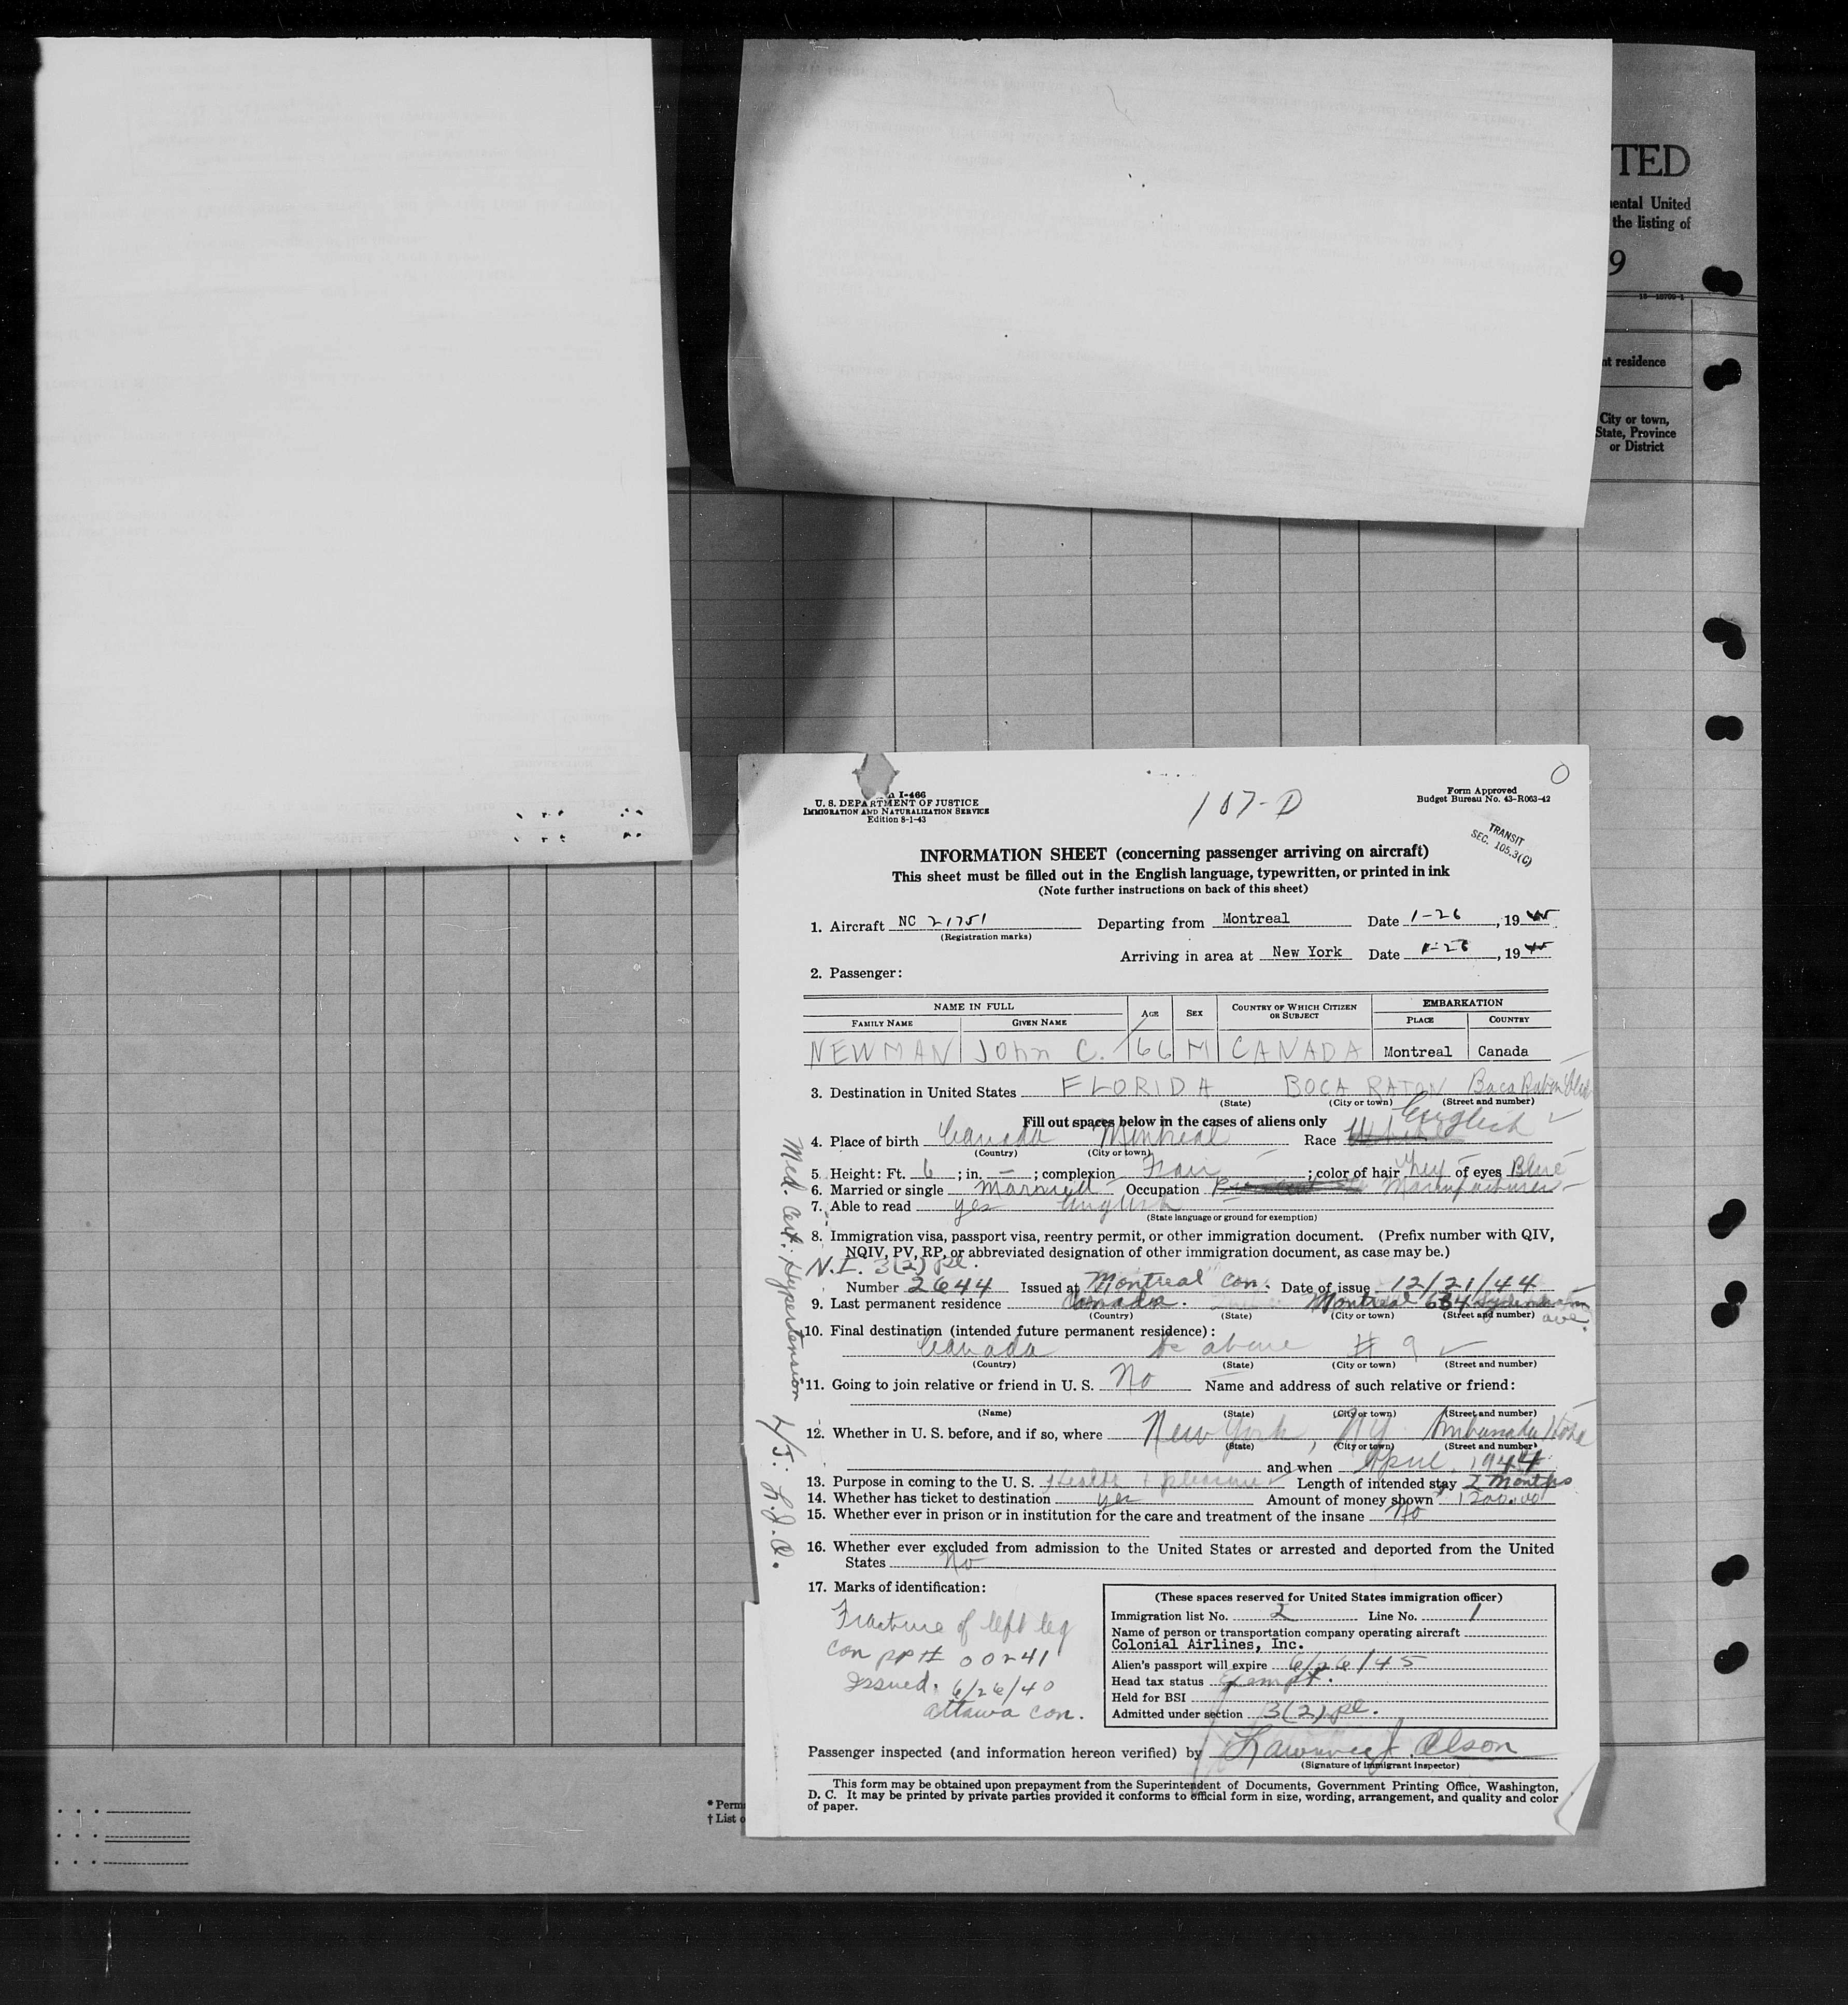 TED
ental United
the listing of
9
16—18799-1
nt residence
City or town,
State, Province
or District
I-466
U. S. DEPARTMENT OF JUSTICE
IMMIGRATION AND NATURALIZATION SERVICE
Edition 8-1-43
107-D
Form Approved
Budget Bureau No. 43-R063-42
O
TRANSIT
SEC. 105.3(C)
INFORMATION SHEET (concerning passenger arriving on aircraft)
This sheet must be filled out in the English language, typewritten, or printed in ink
(Note further instructions on back of this sheet)
1. Aircraft NC 21751 Departing from Montreal Date 1-26, 1945
(Registration marks)
Arriving in area at New York Date 1-26, 1945
2. Passenger:
NAME IN FULL AGE SEX COUNTRY OF WHICH CITIZEN OR SUBJECT EMBARKATION
FAMILY NAME GIVEN NAME PLACE COUNTRY
NEWMAN John C. 66 M CANADA Montreal Canada
3. Destination in United States FLORIDA BOCA RATON Boca Raton Club
(State) (City or town) (Street and number)
Fill out spaces below in the cases of aliens only
4. Place of birth Canada Montreal Race English
(Country) (City or town)
5. Height: Ft. 6; in. —; complexion Fair; color of hair Grey of eyes Blue
6. Married or single Married Occupation Manufacturer
7. Able to read yes English
(State language or ground for exemption)
8. Immigration visa, passport visa, reentry permit, or other immigration document. (Prefix number with QIV,
NQIV, PV, RP, or abbreviated designation of other immigration document, as case may be.)
N.I. 3(2) pl.
Number 2644 Issued at Montreal Con. Date of issue 12/21/44
9. Last permanent residence Canada. Montreal 634 ave.
(Country) (State) (City or town) (Street and number)
10. Final destination (intended future permanent residence):
Canada As above # 9
(Country) (State) (City or town) (Street and number)
11. Going to join relative or friend in U. S. No Name and address of such relative or friend:
(Name) (State) (City or town) (Street and number)
12. Whether in U. S. before, and if so, where New York, NY Ambassador Hotel
(State) (City or town) (Street and number)
and when April, 1944
13. Purpose in coming to the U. S. Health & pleasure Length of intended stay 2 Months
14. Whether has ticket to destination yes Amount of money shown $1200.00
15. Whether ever in prison or in institution for the care and treatment of the insane No
16. Whether ever excluded from admission to the United States or arrested and deported from the United
States No
17. Marks of identification:
Fracture of left leg
Can pp# 00241
Issued: 6/26/40
Ottawa Can.
(These spaces reserved for United States immigration officer)
Immigration list No. 2 Line No. 1
Name of person or transportation company operating aircraft
Colonial Airlines, Inc.
Alien's passport will expire 6/26/45
Head tax status Exempt.
Held for BSI
Admitted under section 3(2) pl.
Passenger inspected (and information hereon verified) by Lawrence J. Olson
(Signature of immigrant inspector)
This form may be obtained upon prepayment from the Superintendent of Documents, Government Printing Office, Washington,
D. C. It may be printed by private parties provided it conforms to official form in size, wording, arrangement, and quality and color
of paper.
Med. Cert: Hypertension L.J.O.
* Perm
† List o